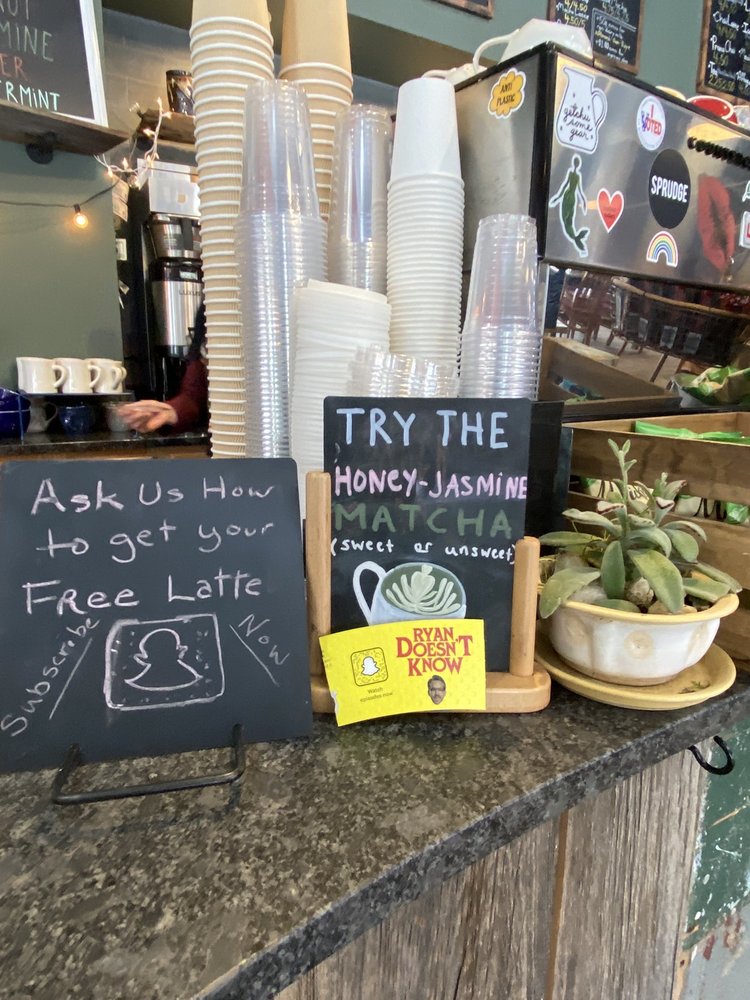 MINE
ER
ERMINT
ANTI
PLASTIC
getchu
some
gear
I
VOTED
SPRUDGE
COUNTER
Ask Us How
to get your
Free Latte
Subscribe
Now
TRY THE
HONEY-JASMINE
MATCHA
(sweet or unsweet)
RYAN
DOESN'T
KNOW
Watch
episodes now